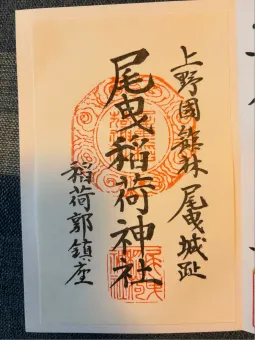 上野國舘林 尾曳城趾
尾曳稲荷神社
稲荷郭鎮座